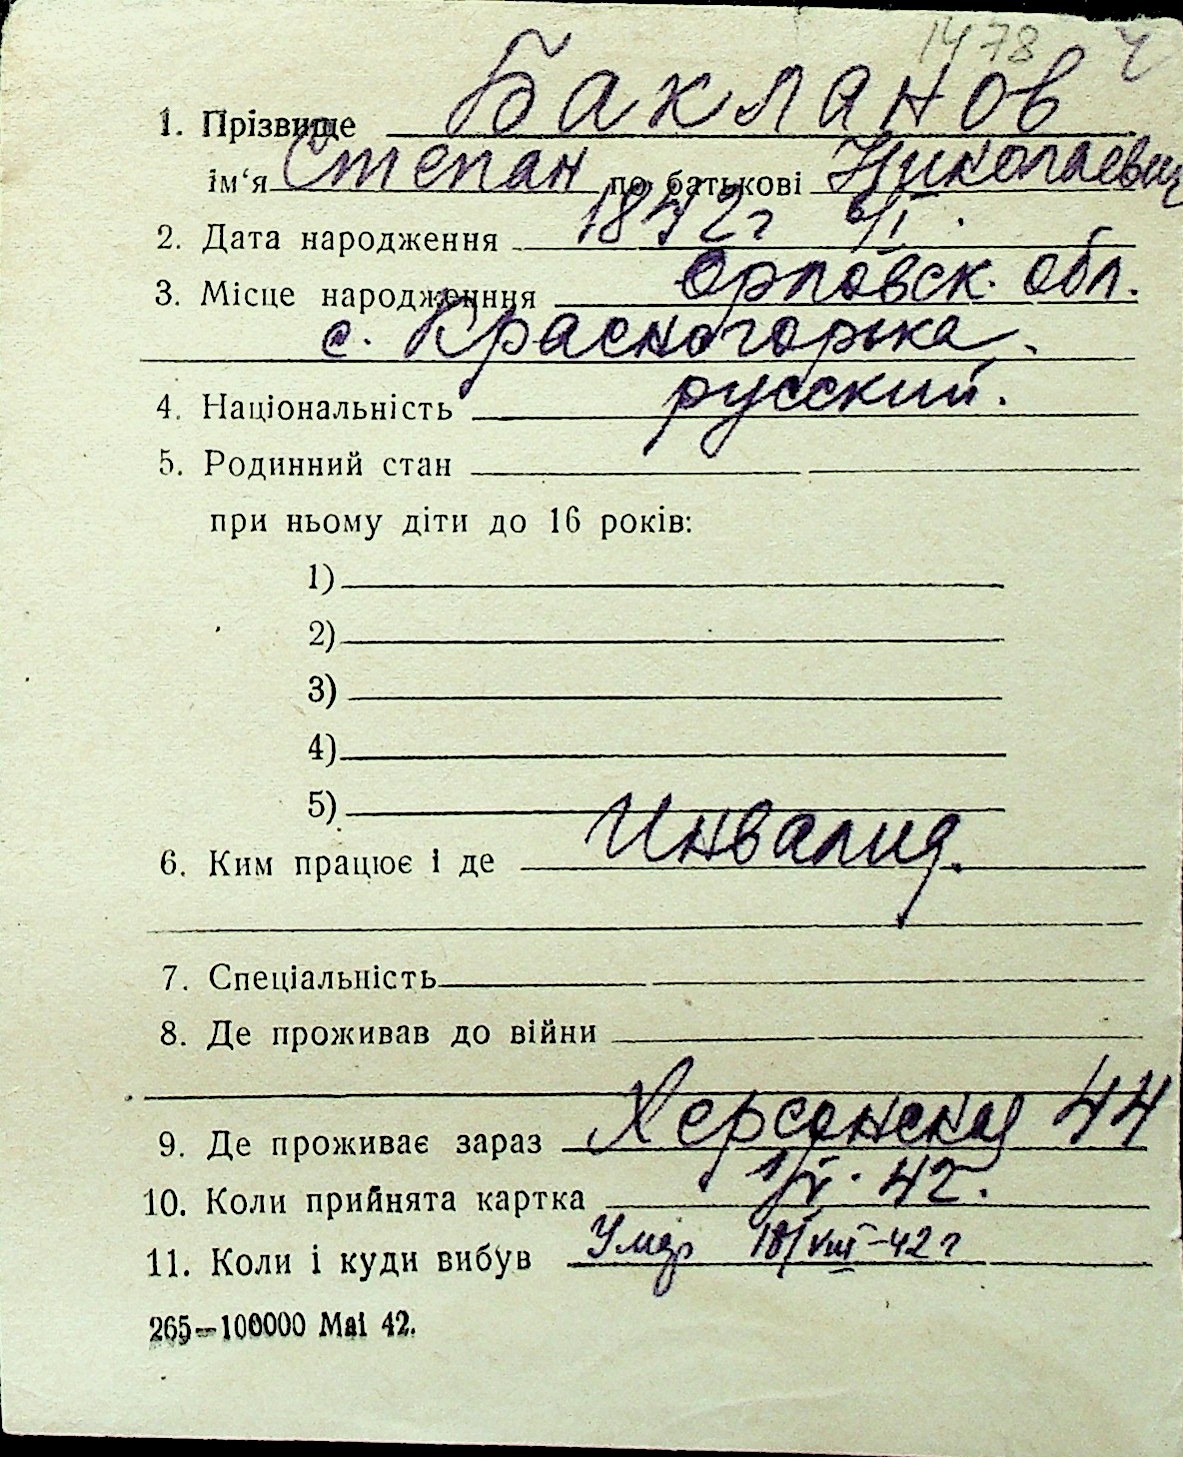 1478 Ч
1. Прізвище Бакланов
ім‘я Степан по батькові Николаевич
2. Дата народження 1842г 6/I.
3. Місце народженння Орловск. обл.
с. Красногорька.
4. Національність русский.
5. Родинний стан
при ньому діти до 16 років:
1)
2)
3)
4)
5)
6. Ким працює і де Инвалид.
7. Спеціальність
8. Де проживав до війни
9. Де проживає зараз Херсонская 44
10. Коли прийнята картка 1/V. 42.
11. Коли і куди вибув Умер 18/VIII-42г
265—100000 Mai 42.